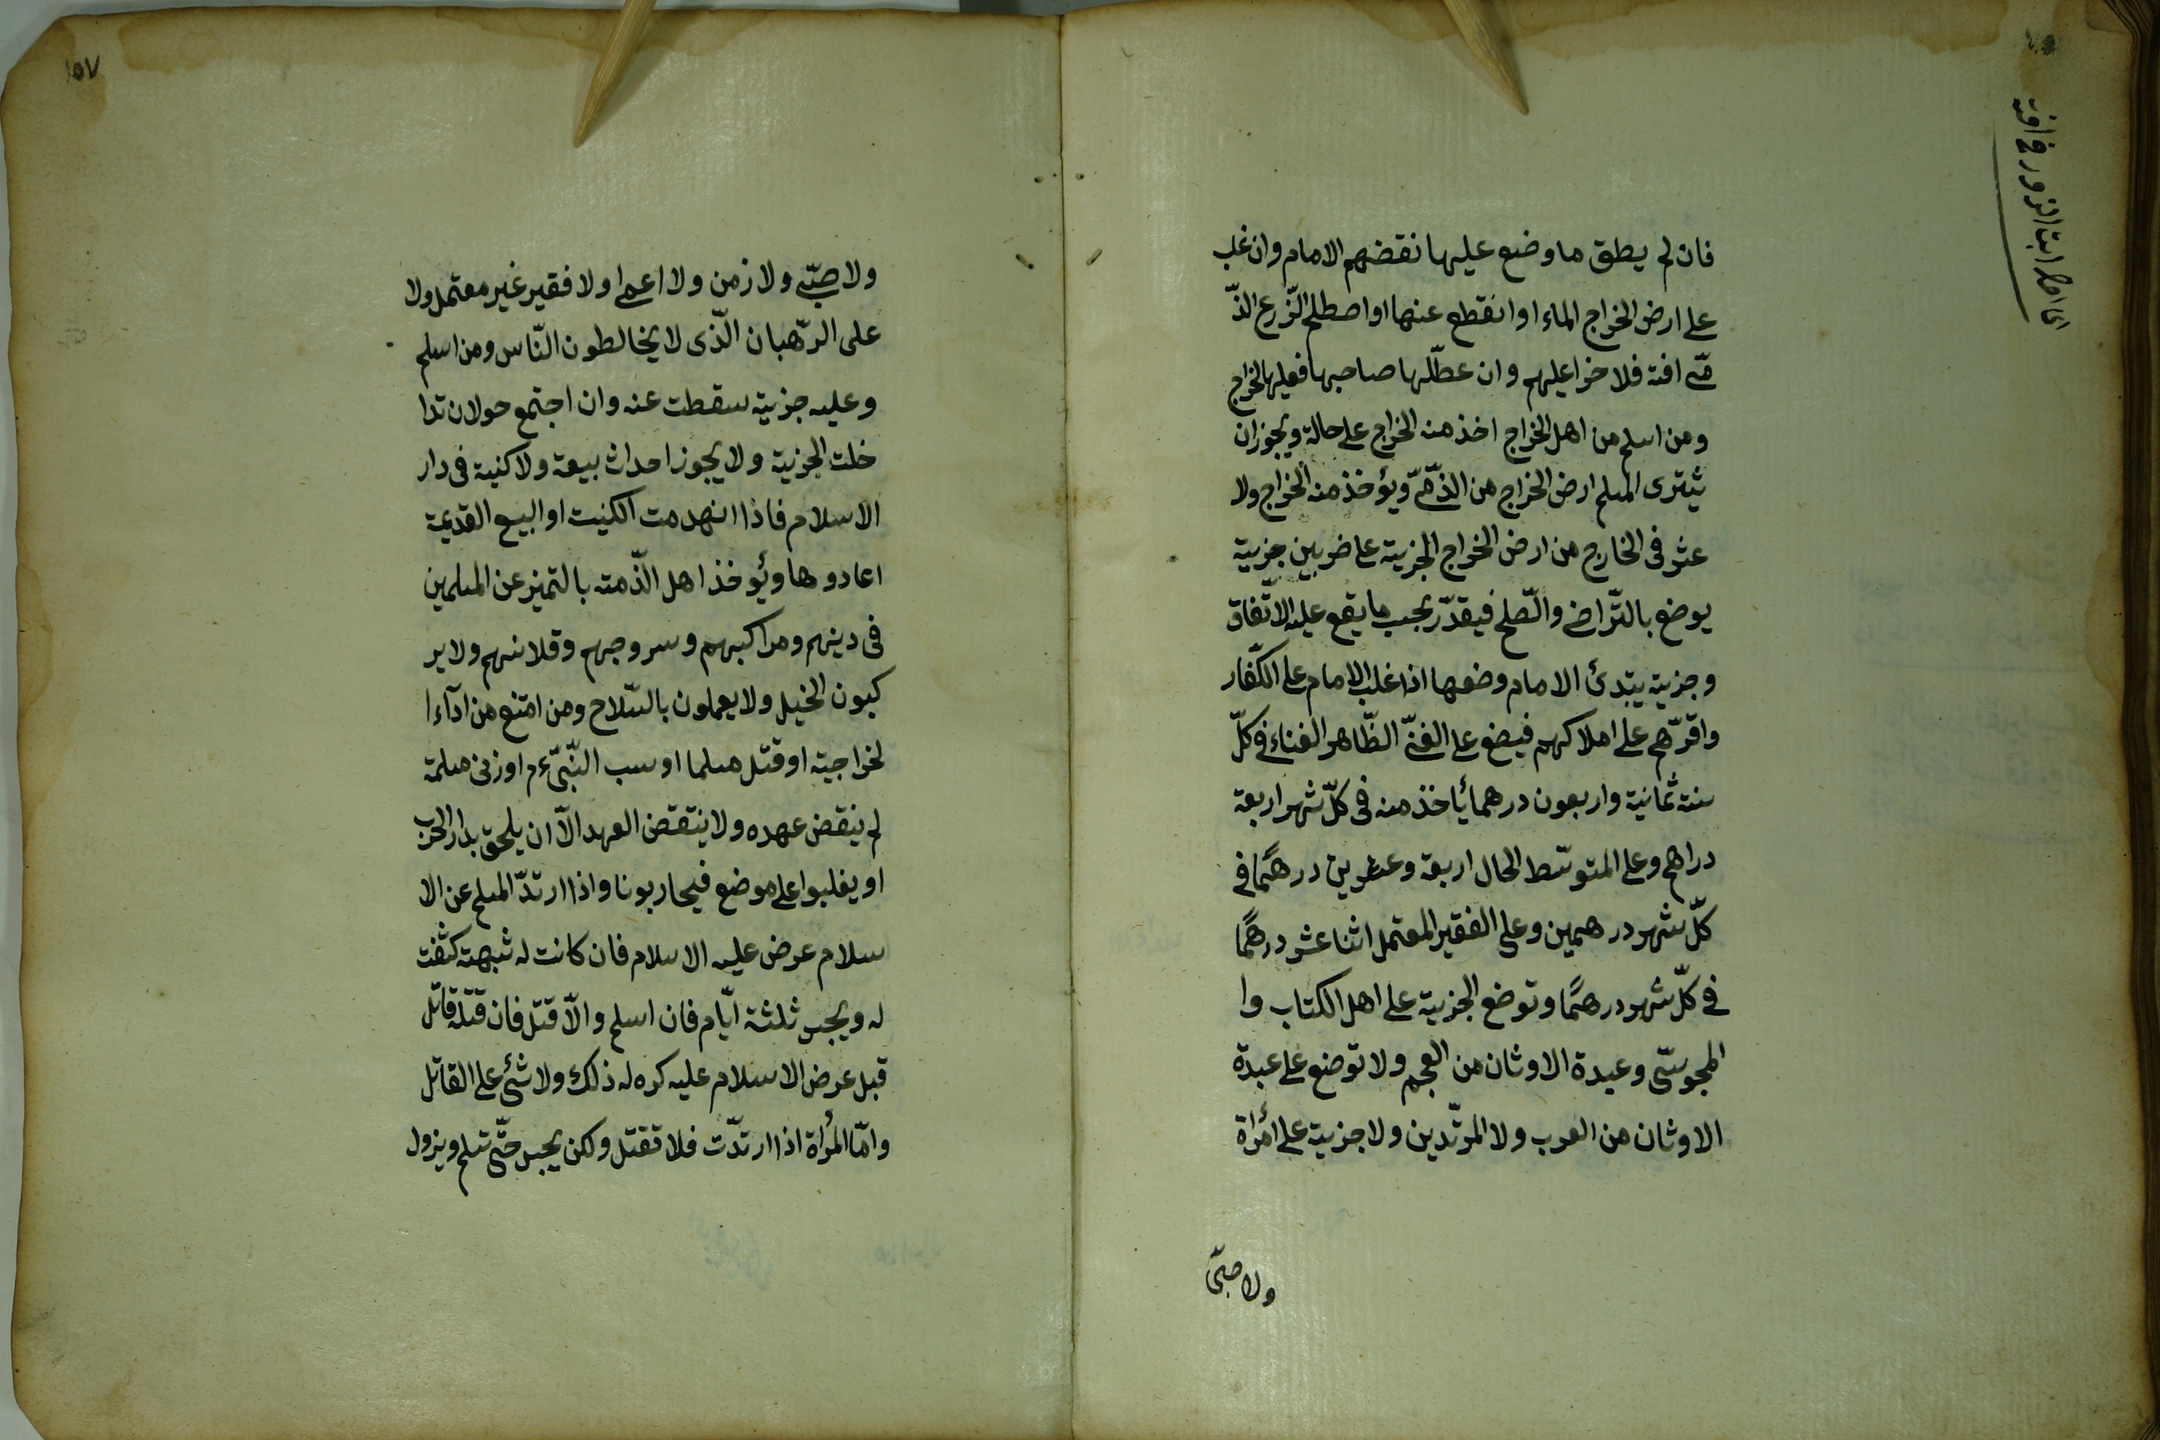 فان لم يطق ما وضع عليها نقضهم الامام وان غلب
على ارض الخراج الماء او انقطع عنها او اصطلح الزّرع الذّ
مّى افة فلا خرا عليهم وان عطّلها صاحبها فعليها الخراج
ومن اسلم من اهل الخراج اخذ منه الخراج على حالة ويجوز ان
يشترى المسلم ارض الخراج من الذّمّى ويؤخذ منه الخراج ولا
عشر فى الخارج من ارض الخراج الجزية على ضربين جزية
يوضع بالتّراضى والصّلح فيقدّر بحسب ما يقع عليه الاتّفاق
وجزية يبتدئ الامام وضعها اذا غلب الامام على الكفّار
واقرّهم على املاكهم فيضع على الغنىّ الظّاهر الغناء فى كلّ
سنة ثمانية واربعون درهما يأخذ منه فى كلّ شهر اربعة
دراهم وعلى المتوسّط الحال اربعة وعشرين درهمًا فى
كلّ شهر درهمين وعلى الفقير المعتمل اثنا عشر درهمًا
فى كلّ شهر درهمًا وتوضع الجزية على اهل الكتاب وا
لمجوسىّ وعبدة الاوثان من العجم ولا توضع على عبدة
الاوثان من العرب ولا المرتدّين ولا جزية على امرأة
ولا صبىّ
١٥٧
ولا صبّى ولا زمن ولا اعمى ولا فقير غير معتمل ولا
على الرّهبان الّذى لا يخالطون النّاس ومن اسلم
وعليه جزية سقطت عنه وان اجتمع حولان تدا
خلت الجزية ولا يجوز احداث بيعة ولا كنية فى دار
الاسلام فاذا انهدمت الكنيت او البيع القديمة
اعادوها ويؤخذ اهل الذّمة بالتميز عن المسلمين
فى دينهم ومراكبهم وسروجهم وقلانسهم ولا ير
كبون الخيل ولا يعملون بالسّلاح ومن امتنع من اداء ا
لخراجية او قتل مسلما او سب النّبىّ ءم او زنى مسلمة
لم ينقض عهده ولا ينتقض العهد الاّ ان يلحق بدار الحرب
او يغلبوا على موضع فيحاربونا واذا ارتدّ المسلم عن الا
سلام عرض عليه الاسلام فان كانت له شبهة كشفت
له ويحبس ثلثة ايّام فان اسلم والاّ قتل فان قتله قاتل
قبل عرض الاسلام عليه كره له ذلك ولا شئ على القاتل
وامّا المرأة اذا ارتدّت فلا تقتل ولكن يحبس حتّى تسلم ويزول